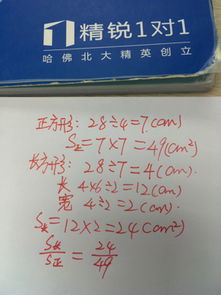 精锐1对1
哈佛北大精英创立
正方形: 28÷4=7(cm)
S正=7×7=49(cm²)
长方形: 28÷7=4(cm).
长 4×6÷2=12(cm)
宽 4÷2=2(cm).
S长=12×2=24(cm²)
S长/S正=24/49